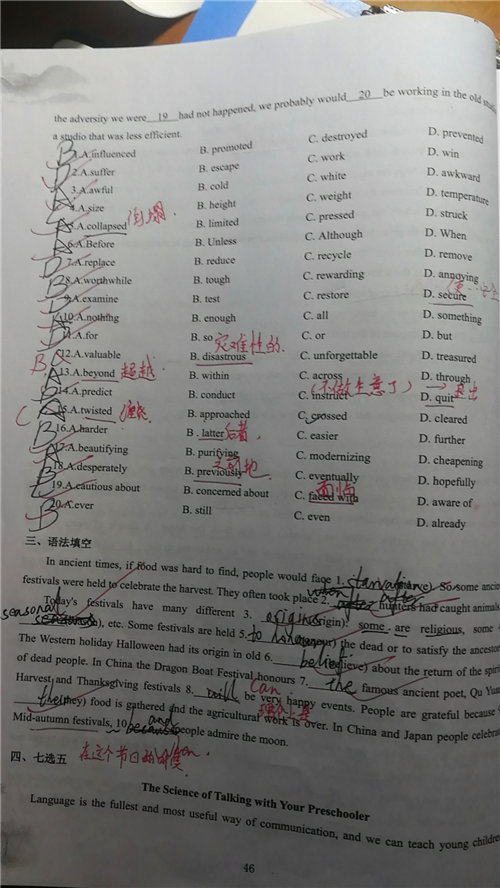 the adversity we were 19 had not happened, we probably would 20 be working in the old
a studio that was less efficient.
B 1.A.influenced B. promoted C. destroyed D. prevented
2.A.suffer B. escape C. work D. win
3.A.awful B. cold C. white D. awkward
4.A.size B. height C. weight D. temperature
A 5.A.collapsed 倒塌 B. limited C. pressed D. struck
A 6.A.Before B. Unless C. Although D. When
D 7.A.replace B. reduce C. recycle D. remove
8.A.worthwhile B. tough C. rewarding D. annoying
9.A.examine B. test C. restore D. secure
10.A.nothing B. enough C. all D. something
11.A.for B. so C. or D. but
灾难性的
B 12.A.valuable B. disastrous C. unforgettable D. treasured
A 13.A.beyond 超越 B. within C. across D. through
D 14.A.predict B. conduct C. instruct D. quit
C 15.A.twisted B. approached C. crossed D. cleared
B 16.A.harder B . latter 后者 C. easier D. further
17.A.beautifying B. purifying C. modernizing D. cheapening
18.A.desperately B. previously C. eventually D. hopefully
19.A.cautious about B. concerned about C. faced with 面临 D. aware of
B 20.A.ever B. still C. even D. already
三、语法填空
In ancient times, if food was hard to find, people would face 1. starvation (starve). So some
festivals were held to celebrate the harvest. They often took place 2. after hunters had caught animals
Today's festivals have many different 3. origins (origin), some are religious, some
seasonal etc. Some festivals are held 5. to honour the dead or to satisfy the ancestors
The Western holiday Halloween had its origin in old 6. belief (believe) about the return of the
of dead people. In China the Dragon Boat Festival honours 7. the famous ancient poet, Qu
Harvest and Thanksgiving festivals 8. can be very happy events. People are grateful because
(they) food is gathered and the agricultural work is over. In China and Japan people
Mid-autumn festivals, 10. and people admire the moon.
四、七选五 在这个节日的时候
The Science of Talking with Your Preschooler
Language is the fullest and most useful way of communication, and we can teach young
46